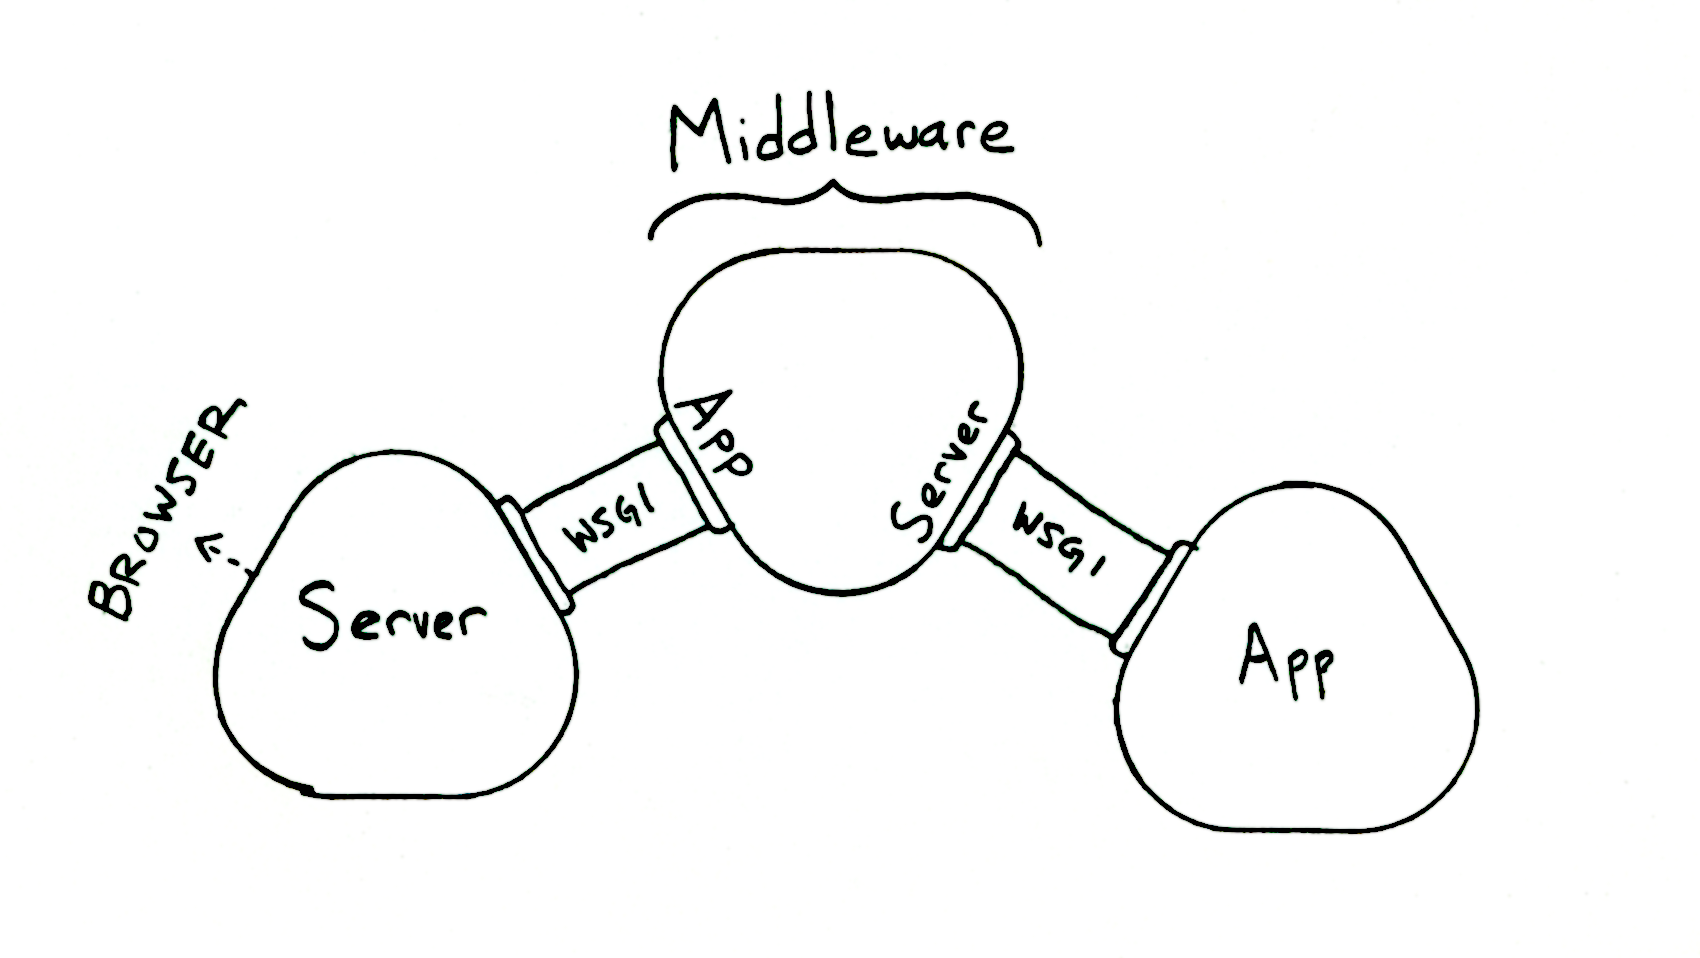 Middleware
BROWSER
Server
WSGI
App
Server
WSGI
App